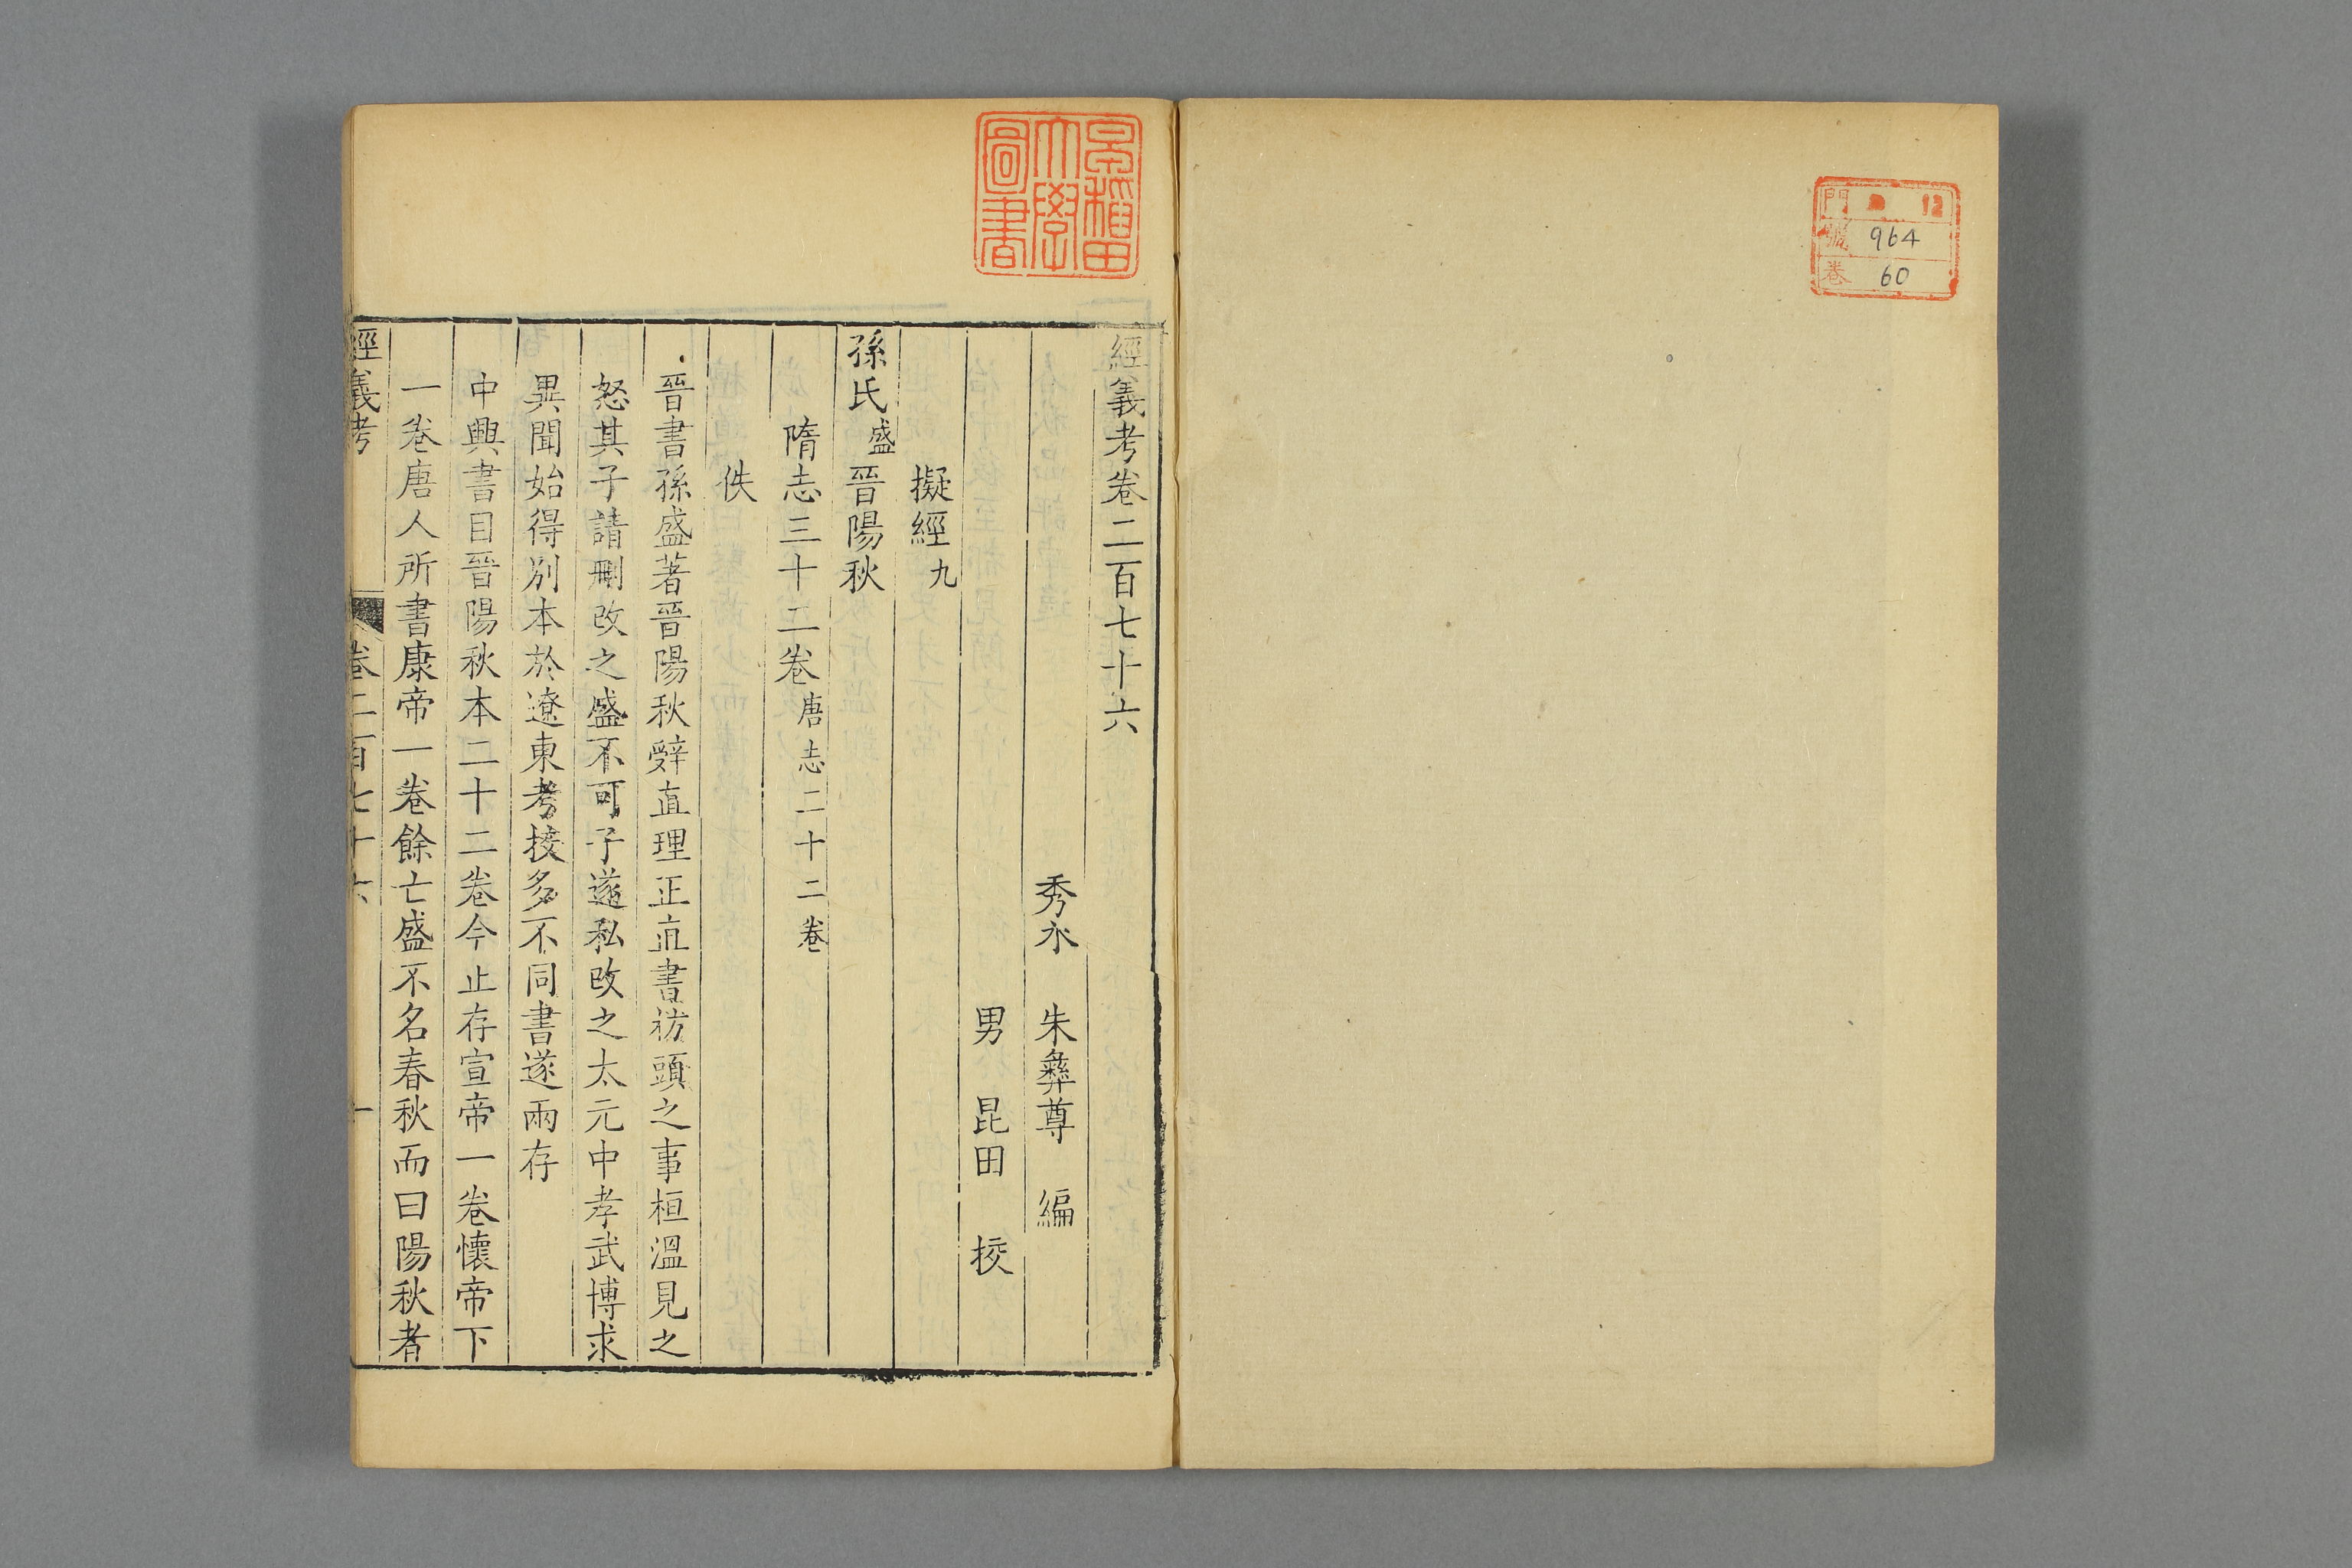 門 12
號 964
卷 60
早稻田
大學
圖書
經義考卷二百七十六
秀水 朱彝尊 編
男 昆田 挍
擬經九
孫氏盛晉陽秋
隋志三十二卷唐志二十二卷
佚
晉書孫盛著晉陽秋辭直理正直書枋頭之事桓溫見之
怒其子請刪改之盛不可子遂私改之太元中孝武博求
異聞始得別本於遼東考挍多不同書遂兩存
中興書目晉陽秋本二十二卷今止存宣帝一卷懷帝下
一卷唐人所書康帝一卷餘亡盛不名春秋而曰陽秋者
經義考 卷二百七十六 一